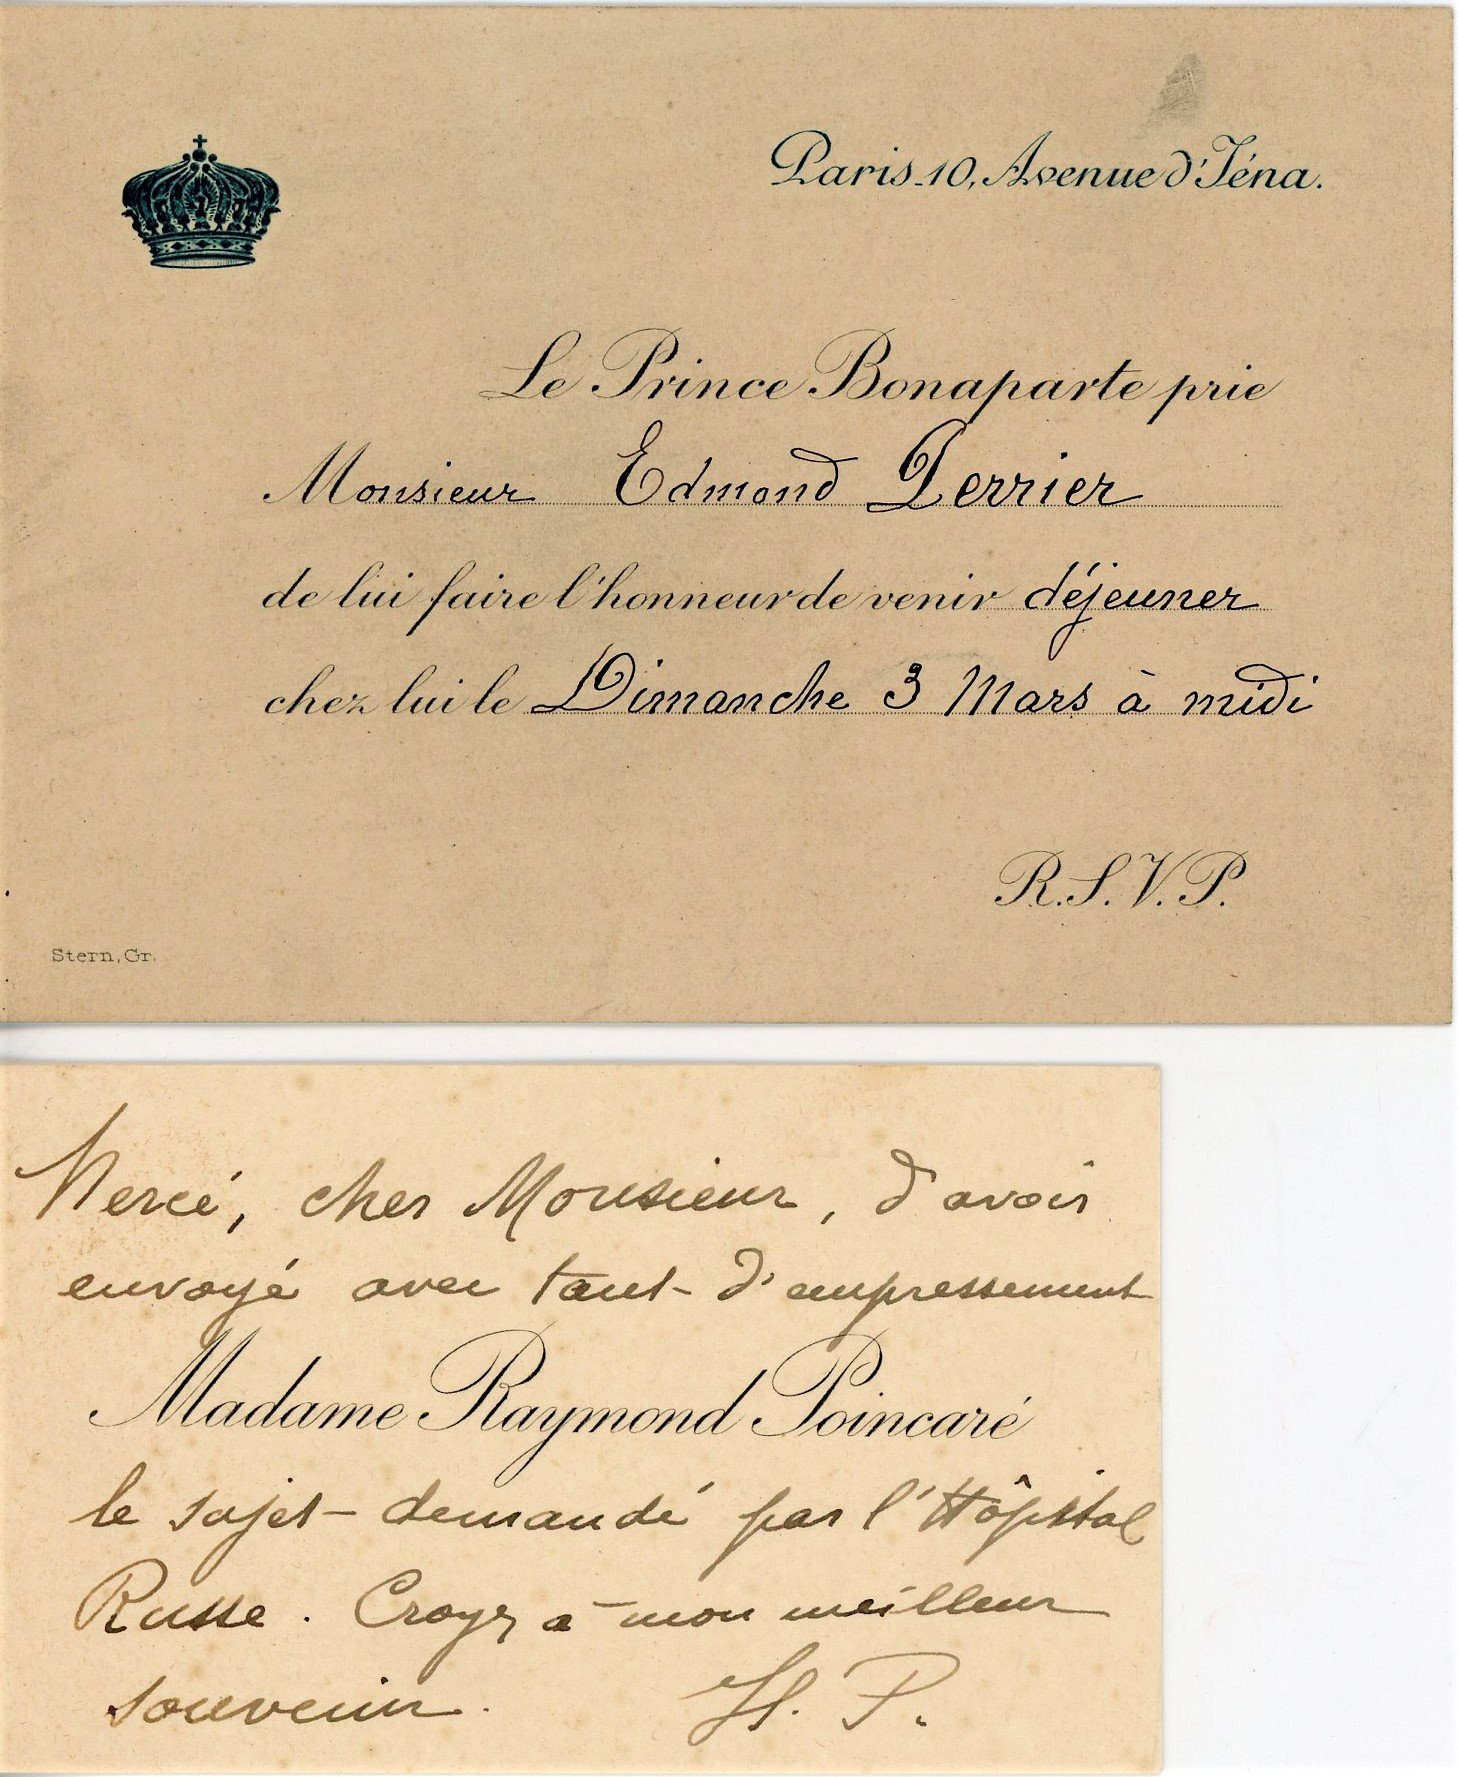 Paris_10, Avenue d'Iéna.
Le Prince Bonaparte prie
Monsieur Edmond Perrier
de lui faire l'honneur de venir déjeuner
chez lui le Dimanche 3 Mars à midi
R.S.V.P.
Stern, Gr.
Merci, cher Monsieur, d'avoir
envoyé avec tant d'empressement
Madame Raymond Poincaré
le sujet demandé par l'Hôpital
Russe. Croyez à mon meilleur
souvenir. H. P.